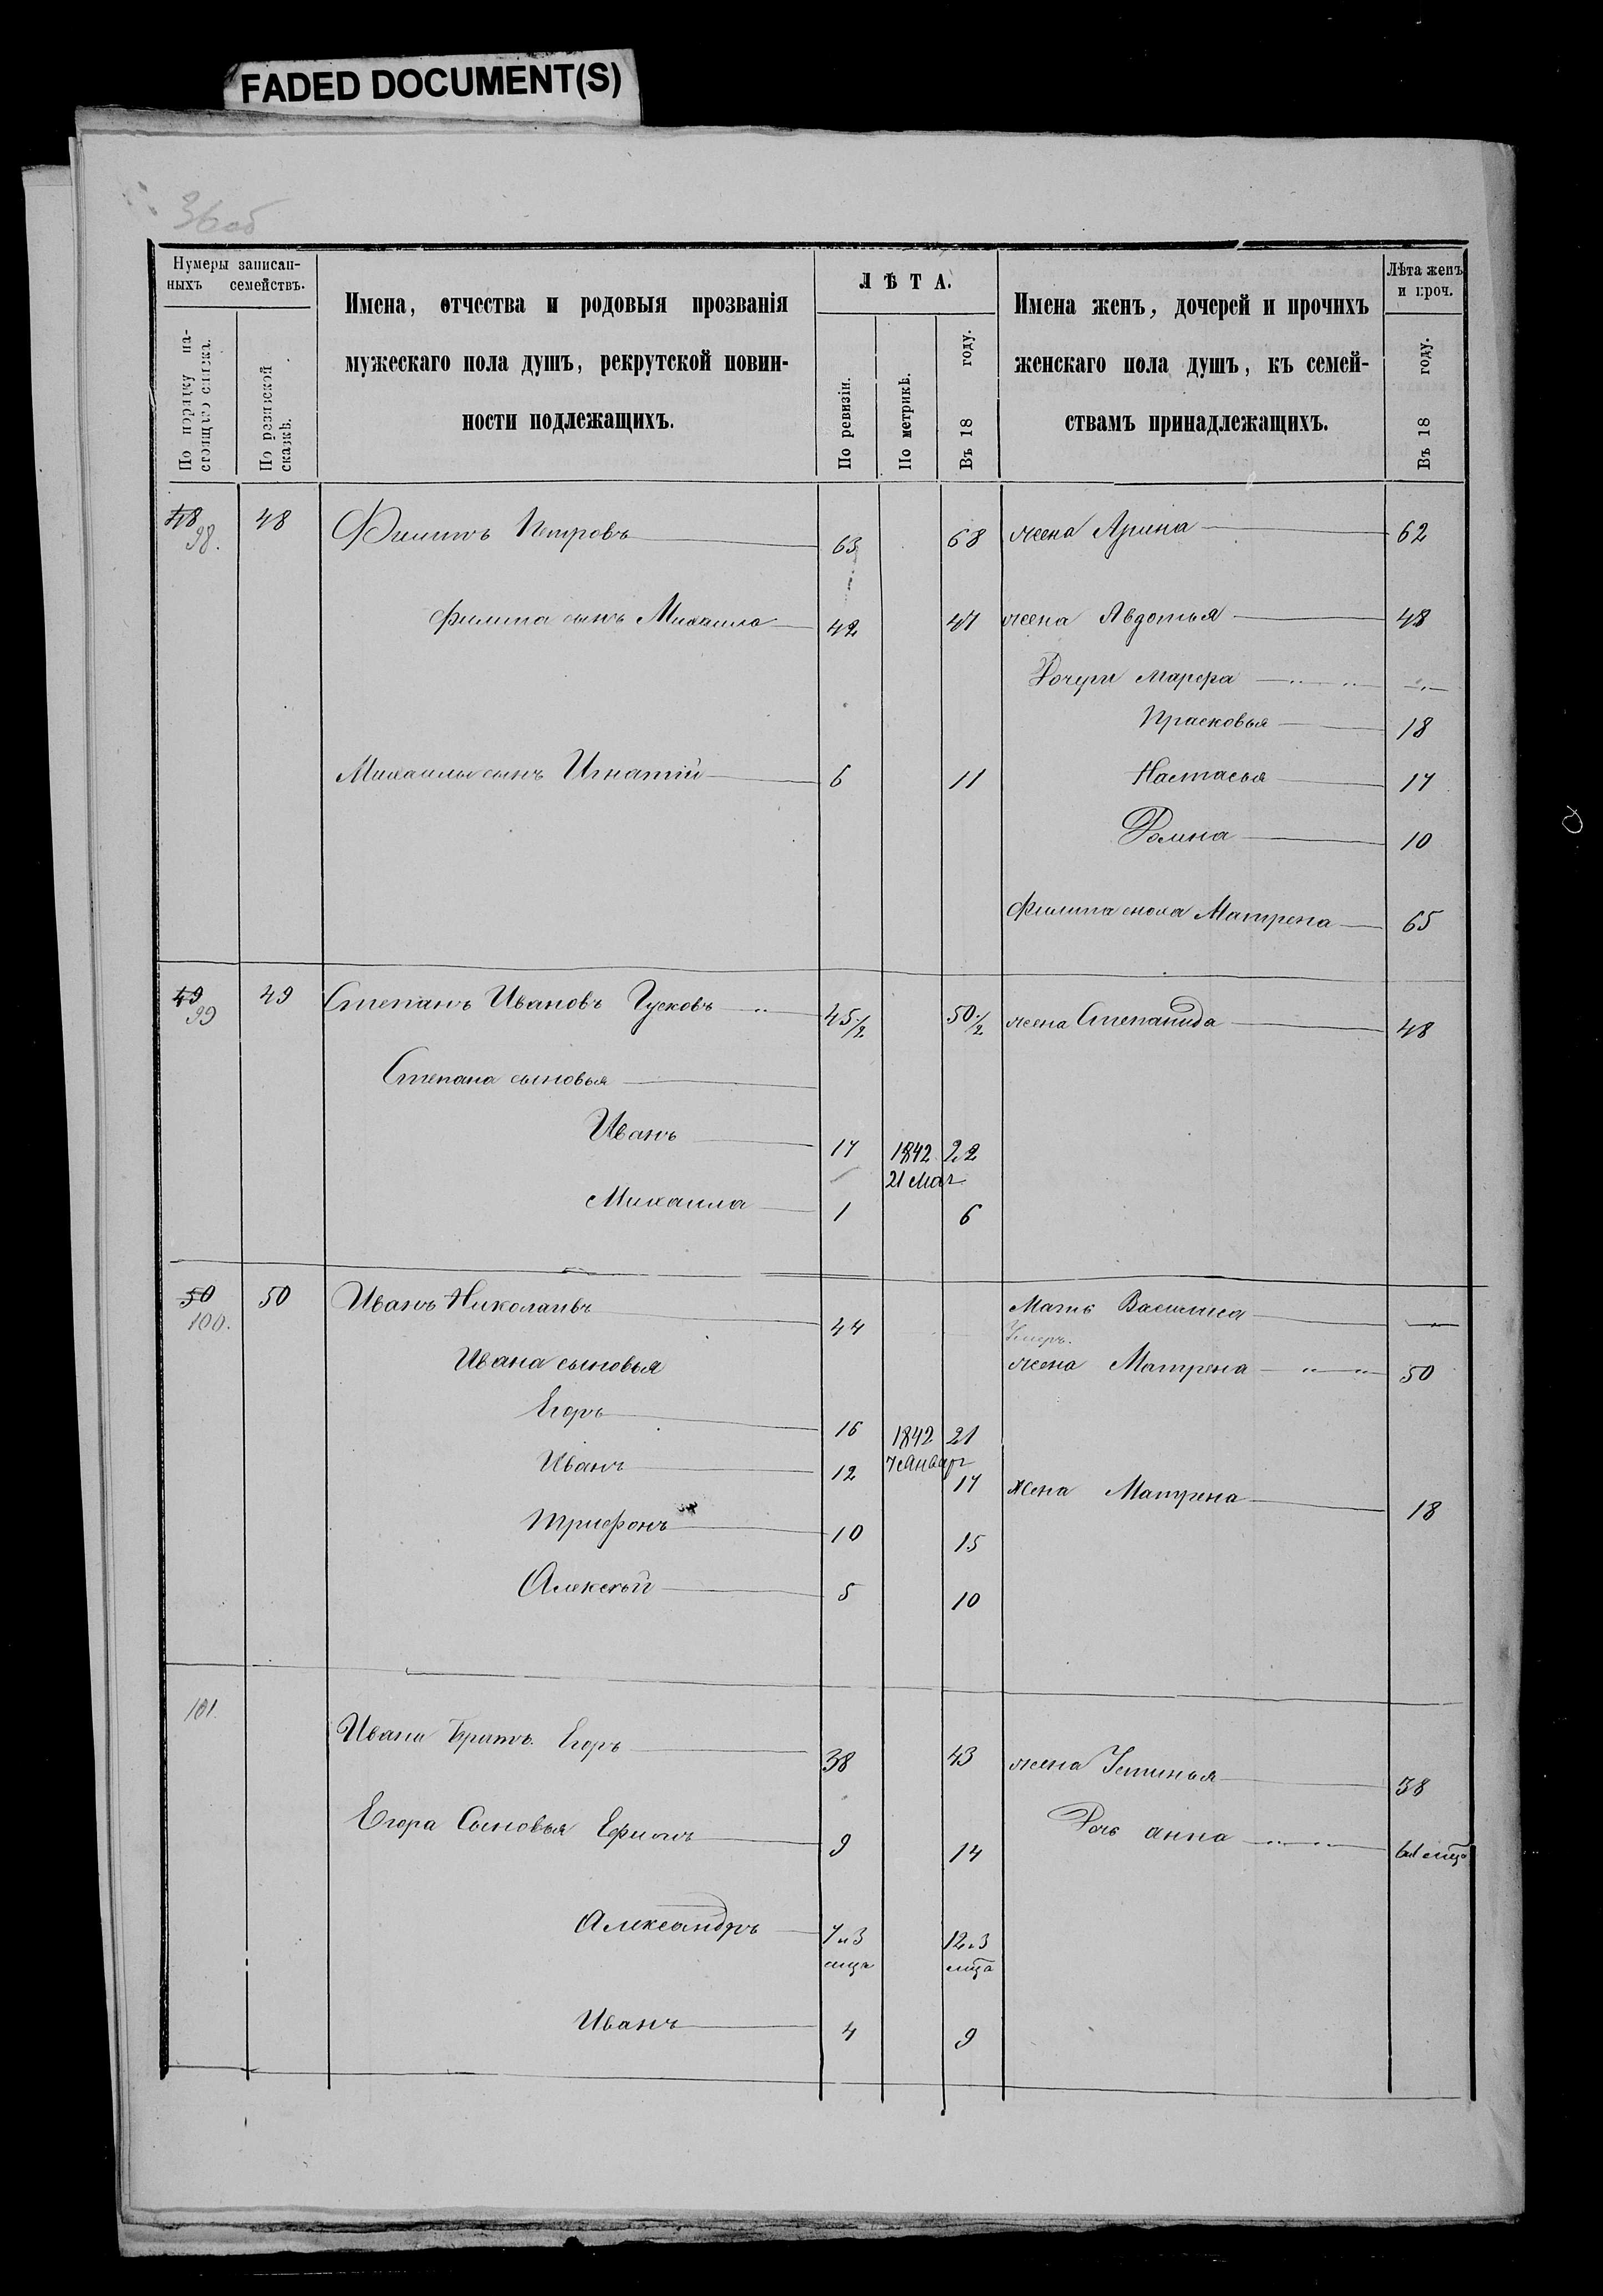 FADED DOCUMENT(S)
36 об
Нумеры записан-
ныхъ семействъ.
По порядку на-
стоящаго списка.
По ревизской
сказкѣ.
Имена, отчества и родовыя прозванія
мужескаго пола душъ, рекрутской повин-
ности подлежащихъ.
ЛѢТА.
По ревизіи.
По метрикѣ.
Въ 18 году.
Имена женъ, дочерей и прочихъ
женскаго пола душъ, къ семей-
ствамъ принадлежащихъ.
Лѣта женъ
и проч.
Въ 18 году.
48 98. 48 Филипъ Петровъ 63 68 жена Арина 62
Филипа сынъ Михаила 42 47 жена Авдотья 48
Дочери Марфа
Прасковья 18
Михаилы сынъ Игнатій 6 11 Настасья 17
Домна 10
Филипа сноха Матрена 65
49 99 49 Степанъ Ивановъ Гусковъ 45 1/2 50 1/2 жена Степанида 48
Степана сыновья
Иванъ 17 1842 22
21 Мар
Михаила 1 6
50 100. 50 Иванъ Николаевъ 44 Мать Василиса
Умеръ.
Ивана сыновья жена Матрена 50
Егоръ 16 1842 21
Иванъ 12 7 Январ 17 жена Матрена 18
Трифонъ 10 15
Алексѣй 5 10
101. Ивана Братъ Егоръ 38 43 жена Устинья 38
Егора Сыновья Ефимъ 9 14 Дочь анна
Александръ 7 и 3 12 и 3
мца мца
Иванъ 4 9